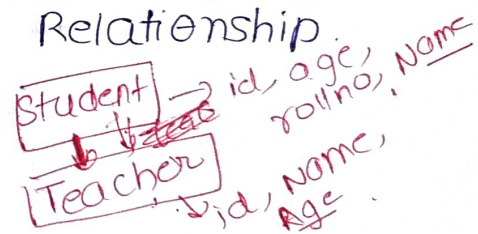 Relationship.
Student → id, age,
rollno, Name
Teacher
id, Name,
Age